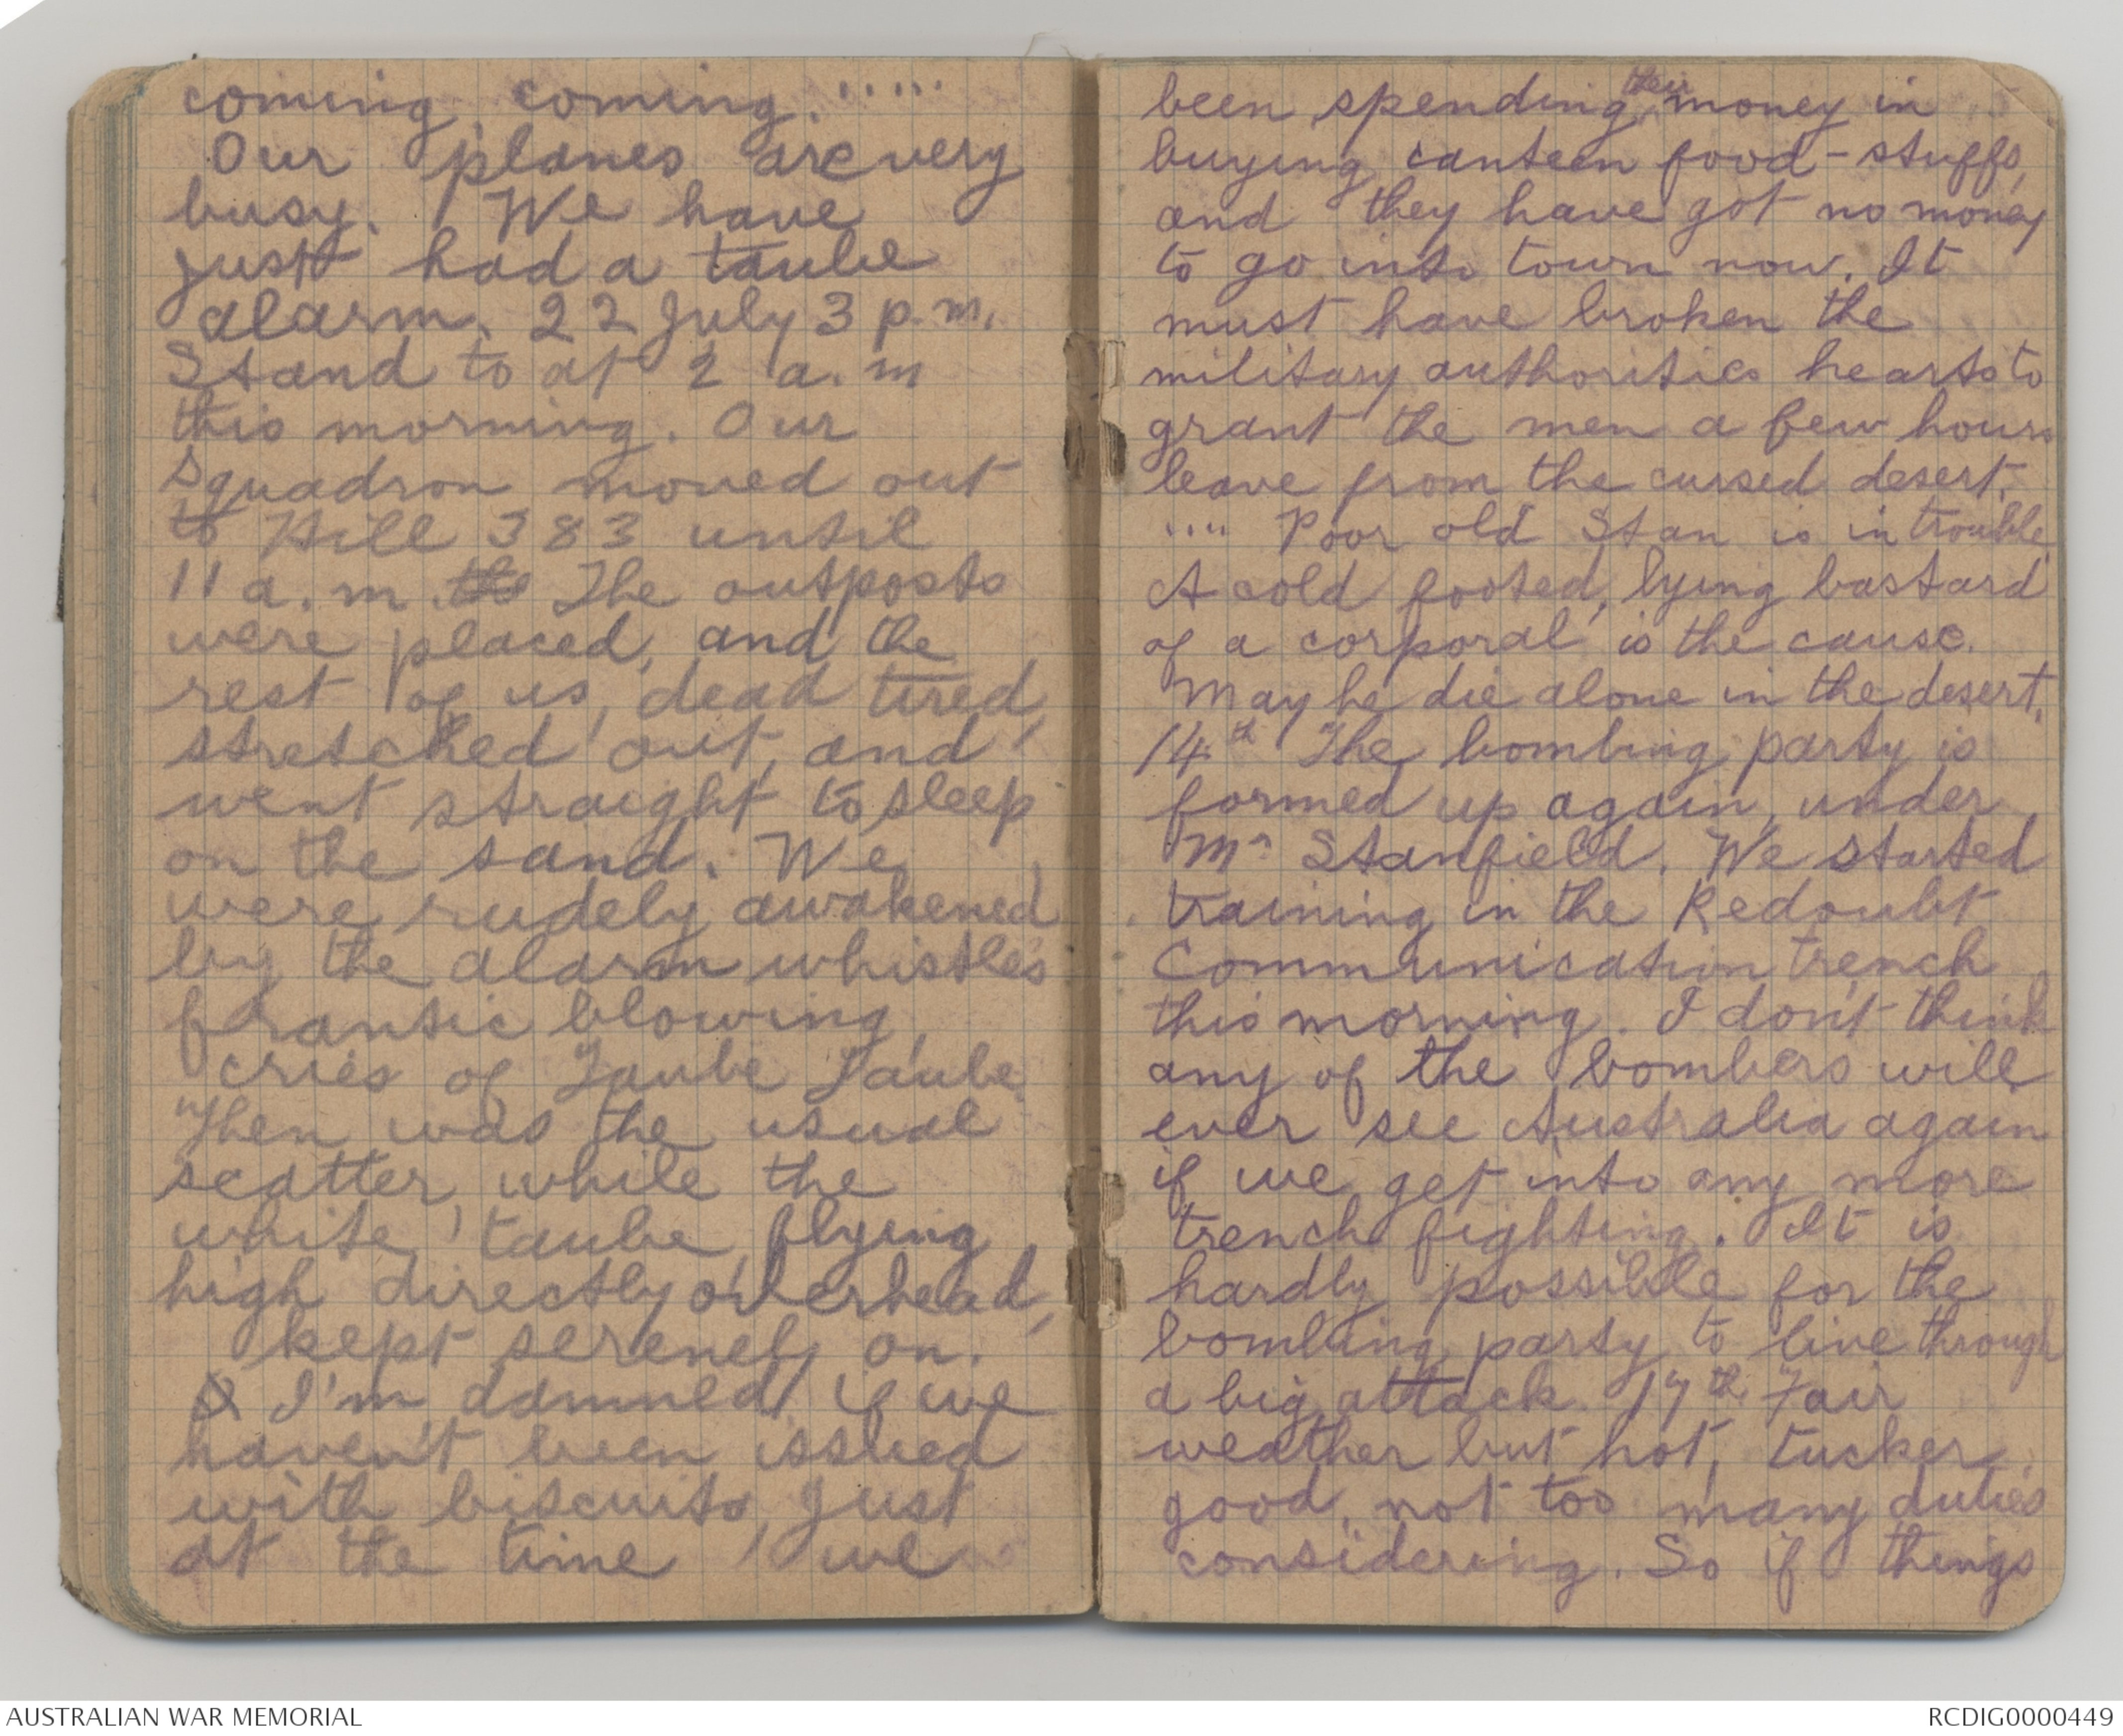 coming, coming. .....
Our planes are very
busy. We have
just had a taube
alarm. 22 July 3 p.m.
Stand to at 2 a.m
this morning. Our
Squadron moved out
to Hill 383 until
11 a.m. the The outposts
were placed, and the
rest of us, dead tired,
stretched out, and
went straight to sleep
on the sand. We
were rudely awakened
by the alarm whistles
frantic blowing,
cries of Taube Taube
Then was the usual
scatter, while the
white taube, flying
high directly overhead,
kept serenely on.
I'm damned if we
haven't been issued
with biscuits, just
at the time we
been spending their money in
buying canteen food-stuffs,
and they have got no money
to go into town now. It
must have broken the
military authorities hearts to
grant the men a few hours
leave from the cursed desert.
.... Poor old Stan is in trouble
A cold footed, lying bastard
of a corporal is the cause.
May he die alone in the desert.
14th The bombing party is
formed up again, under
Mr Stanfield. We started
training in the Redoubt
Communication trench
this morning. I don't think
any of the bombers will
ever see Australia again
if we get into any more
trench fighting. It is
hardly possible for the
bombing party to live through
a big attack. 17th Fair
weather but hot, tucker
good, not too many duties
considering. So if things
AUSTRALIAN WAR MEMORIAL
RCDIG0000449